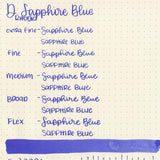 D. Sapphire Blue
extra fine - Sapphire Blue
SAPPHIRE BLUE
Fine - Sapphire Blue
SAPPHIRE BLUE
Medium - Sapphire Blue
SAPPHIRE BLUE
BROAD - Sapphire Blue
SAPPHIRE BLUE
FLEX - Sapphire Blue
SAPPHIRE BLUE